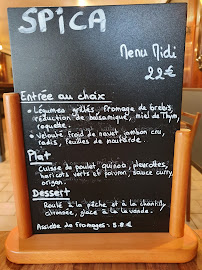 SPiCA
Menu Midi
22€
Entrée au choix
• Légumes grillés, fromage de brebis,
réduction de balsamique, miel de Thym,
roquette.
• Velouté froid de navet, jambon cru,
radis, feuilles de moutarde.
Plat
Cuisse de poulet, quinoa, pleurottes,
haricots verts et poivron, sauce curry,
origan.
Dessert
Roulé à la pêche et à la chantilly
citronnée, glace à la lavande.
Assiette de fromages : 5.8 €